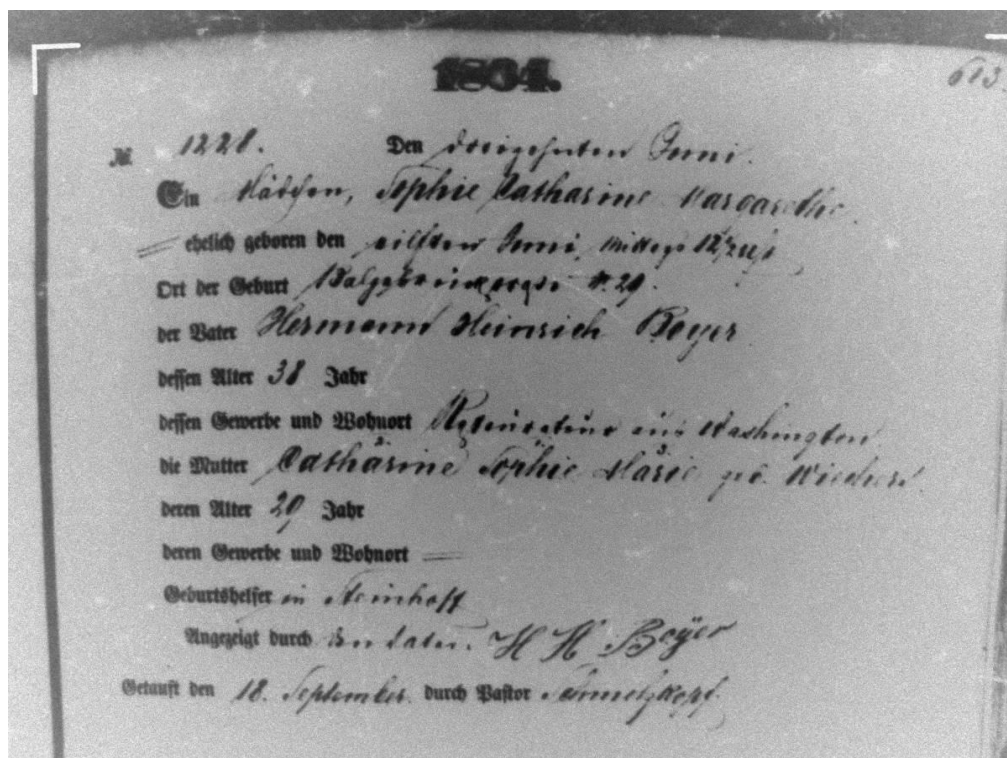 1864.
613
№ 1228. Den dreizehnten Juni.
Ein Mädchen, Sophie Catharine Margarethe
ehelich geboren den eilften Juni, Mittags 12½ Uhr
Ort der Geburt Balgebrückstraße №. 29.
der Vater Hermann Heinrich Boyer
dessen Alter 38 Jahr
dessen Gewerbe und Wohnort aus Washington
die Mutter Catharine Sophie Marie geb. Wiechers
deren Alter 29 Jahr
deren Gewerbe und Wohnort
Geburtshelfer in Steinhoff
Angezeigt durch den Vater. H H Boÿer
Getauft den 18. September. durch Pastor Schmelzkopf.